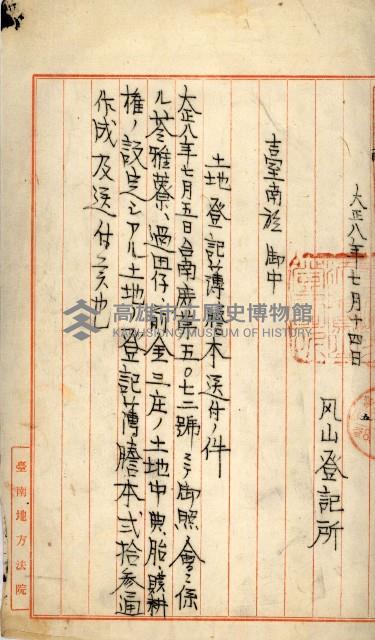 大正八年七月十四日
鳳山登記所
臺南廳 御中
土地登記簿謄本送付ノ件
大正八年七月五日台南廳第五〇七二號ヲ以御照會ニ係
ル苓雅藔、過田仔、金三庄ノ土地中典、胎、贌耕
權ノ設定シアル土地ノ登記簿謄本弐拾参通
作成及送付候也
臺南地方法院
高雄市立歷史博物館
KAOHSIUNG MUSEUM OF HISTORY